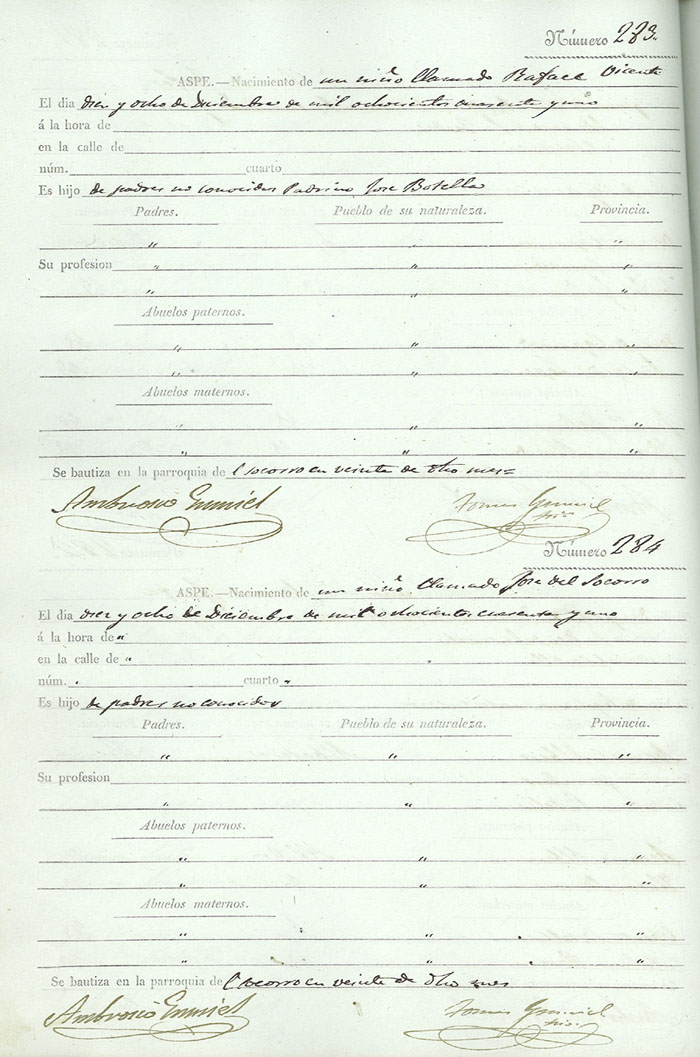 Número 283.
ASPE.—Nacimiento de un niño llamado Rafael Vicente
El dia diez y ocho de Diciembre de mil ochocientos cuarenta y uno
á la hora de
en la calle de
núm. cuarto
Es hijo de padres no conocidos Padrino Jose Botella
Padres. Pueblo de su naturaleza. Provincia.
" " "
Su profesion " " "
" " "
Abuelos paternos.
" " "
" " "
Abuelos maternos.
" " "
" " "
Se bautiza en la parroquia de l Socorro en veinte de dho mes=
Ambrosio
Tomas
Número 284
ASPE.—Nacimiento de un niño llamado Jose del Socorro
El dia diez y ocho de Diciembre de mil ochocientos cuarenta y uno
á la hora de "
en la calle de "
núm. " cuarto "
Es hijo de padres no conocidos
Padres. Pueblo de su naturaleza. Provincia.
" " "
Su profesion
" " "
Abuelos paternos.
" " "
" " "
Abuelos maternos.
" " "
" " "
Se bautiza en la parroquia de l Socorro en veinte de dho mes
Ambrosio
Tomas